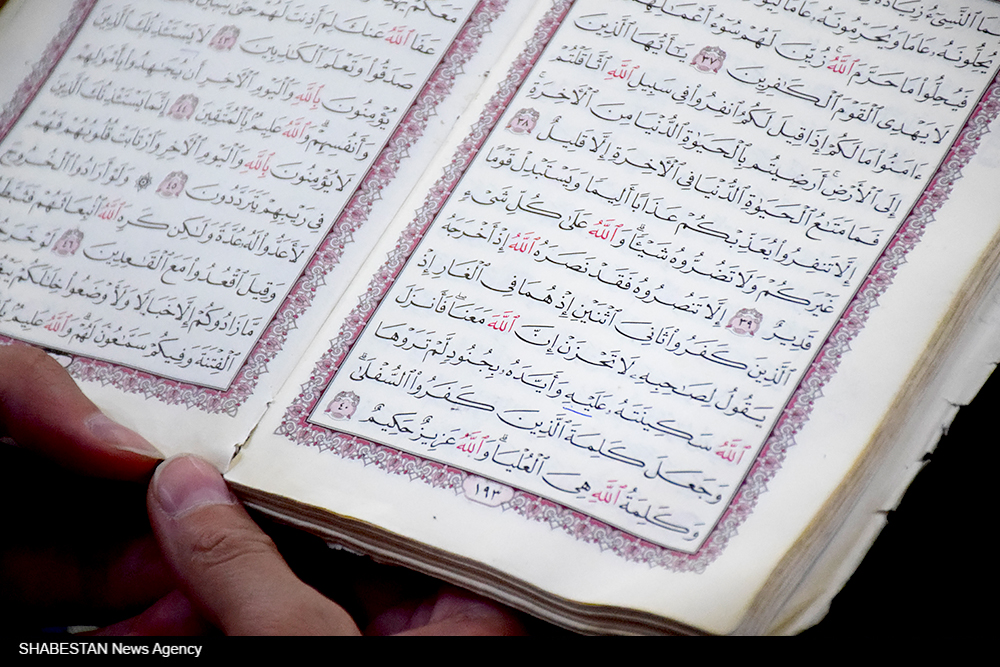 ٱلنَّسِىٓءُ
يُحِلُّونَهُۥ عَامًا وَيُحَرِّمُونَهُۥ عَامًا
فَيُحِلُّوا۟ مَا حَرَّمَ ٱللَّهُ زُيِّنَ لَهُمْ سُوٓءُ أَعْمَٰلِهِمْ
لَا يَهْدِى ٱلْقَوْمَ ٱلْكَٰفِرِينَ ٣٧ يَٰٓأَيُّهَا ٱلَّذِينَ
ءَامَنُوا۟ مَا لَكُمْ إِذَا قِيلَ لَكُمُ ٱنفِرُوا۟ فِى سَبِيلِ ٱللَّهِ ٱثَّاقَلْتُمْ
إِلَى ٱلْأَرْضِ أَرَضِيتُم بِٱلْحَيَوٰةِ ٱلدُّنْيَا مِنَ ٱلْءَاخِرَةِ
فَمَا مَتَٰعُ ٱلْحَيَوٰةِ ٱلدُّنْيَا فِى ٱلْءَاخِرَةِ إِلَّا قَلِيلٌ ٣٨
إِلَّا تَنفِرُوا۟ يُعَذِّبْكُمْ عَذَابًا أَلِيمًا وَيَسْتَبْدِلْ قَوْمًا
غَيْرَكُمْ وَلَا تَضُرُّوهُ شَيْـًٔا وَٱللَّهُ عَلَىٰ كُلِّ شَىْءٍ
قَدِيرٌ ٣٩ إِلَّا تَنصُرُوهُ فَقَدْ نَصَرَهُ ٱللَّهُ إِذْ أَخْرَجَهُ
ٱلَّذِينَ كَفَرُوا۟ ثَانِىَ ٱثْنَيْنِ إِذْ هُمَا فِى ٱلْغَارِ إِذْ
يَقُولُ لِصَٰحِبِهِۦ لَا تَحْزَنْ إِنَّ ٱللَّهَ مَعَنَا فَأَنزَلَ
ٱللَّهُ سَكِينَتَهُۥ عَلَيْهِ وَأَيَّدَهُۥ بِجُنُودٍ لَّمْ تَرَوْهَا
وَجَعَلَ كَلِمَةَ ٱلَّذِينَ كَفَرُوا۟ ٱلسُّفْلَىٰ
وَكَلِمَةُ ٱللَّهِ هِىَ ٱلْعُلْيَا وَٱللَّهُ عَزِيزٌ حَكِيمٌ ٤٠
١٩٣
مَعَكُمْ
عَفَا ٱللَّهُ عَنكَ لِمَ أَذِنتَ لَهُمْ حَتَّىٰ
صَدَقُوا۟ وَتَعْلَمَ ٱلْكَٰذِبِينَ ٤٣ لَا يَسْتَـْٔذِنُكَ ٱلَّذِينَ
يُؤْمِنُونَ بِٱللَّهِ وَٱلْيَوْمِ ٱلْءَاخِرِ أَن يُجَٰهِدُوا۟ بِأَمْوَٰلِهِمْ
وَأَنفُسِهِمْ وَٱللَّهُ عَلِيمٌۢ بِٱلْمُتَّقِينَ ٤٤ إِنَّمَا يَسْتَـْٔذِنُكَ ٱلَّذِينَ
لَا يُؤْمِنُونَ بِٱللَّهِ وَٱلْيَوْمِ ٱلْءَاخِرِ وَٱرْتَابَتْ قُلُوبُهُمْ فَهُمْ
فِى رَيْبِهِمْ يَتَرَدَّدُونَ ٤٥ ۞ وَلَوْ أَرَادُوا۟ ٱلْخُرُوجَ
لَأَعَدُّوا۟ لَهُۥ عُدَّةً وَلَٰكِن كَرِهَ ٱللَّهُ ٱنۢبِعَاثَهُمْ
وَقِيلَ ٱقْعُدُوا۟ مَعَ ٱلْقَٰعِدِينَ ٤٦ لَوْ
مَّا زَادُوكُمْ إِلَّا خَبَالًا وَلَأَوْضَعُوا۟ خِلَٰلَكُمْ
ٱلْفِتْنَةَ وَفِيكُمْ سَمَّٰعُونَ لَهُمْ وَٱللَّهُ عَلِيمٌۢ
SHABESTAN News Agency